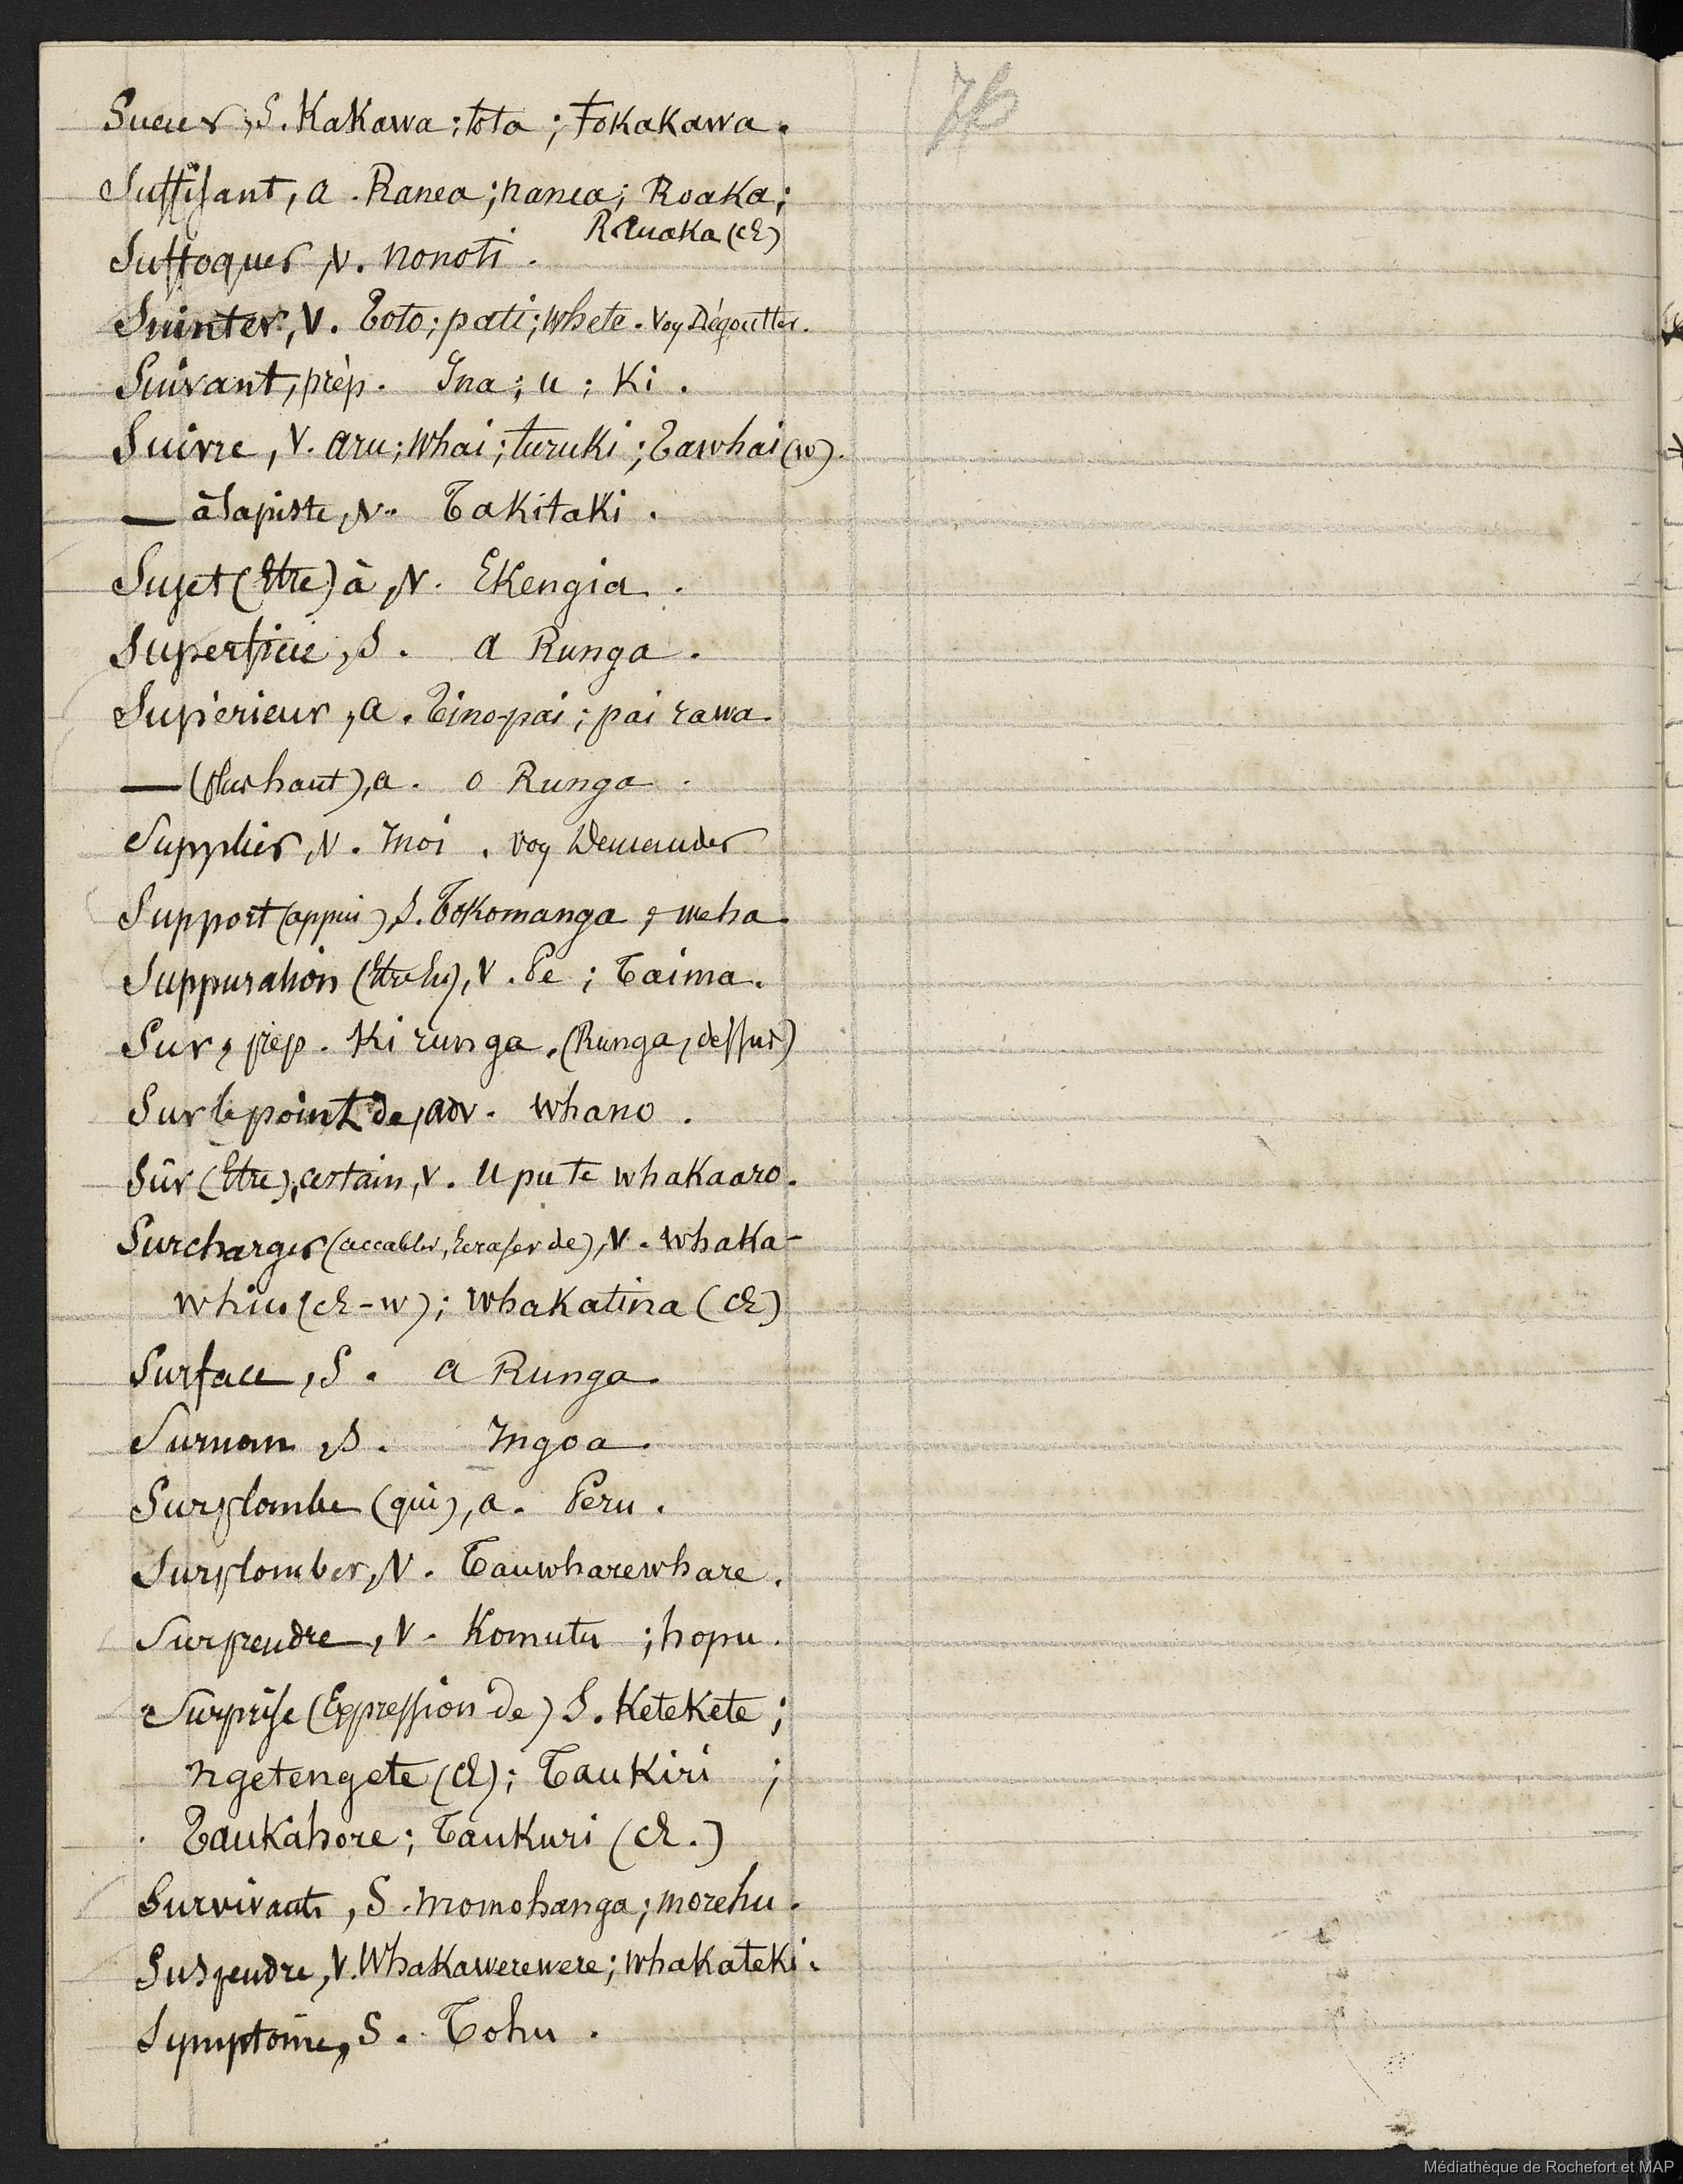 76
Sueur, S. Kakawa; tota; tokakawa.
Suffisant, a. Ranea; nanea; Roaka;
Rauaka (ch)
Suffoquer, v. nonoti.
Suinter, V. Toto; pati; whete. Voy Dégoutter.
Suivant, prép. Ina; u; Ki.
Suivre, V. aru; whai; turuki; Tawhai (w).
— à la piste, v. Takitaki.
Sujet (Etre) à, v. Ekengia.
Superficie, S. a Runga.
Supérieur, a. Tino-pai; pai rawa.
— (plus haut), a. o Runga.
Supplier, v. Inoi. voy Demander
Support (appui) S. Tokomanga; weha.
Suppuration (Etre en), V. Pe; Taima.
Sur, prép. Ki runga. (Runga, dessus)
Sur le point de, adv. whano.
Sûr (Etre), certain, v. U pu te whakaaro.
Surcharger (accabler, Ecraser de), V. whaka-
whiu (ch-w); whakatina (ch)
Surface, S. a Runga.
Surnom, S. Ingoa.
Surplombe (qui), a. Peru.
Surplomber, V. Tauwharewhare.
Surprendre, V. Komutu; hopu.
Surprise (Expression de) S. Ketekete;
ngetengete (ch); Taukiri;
Taukahore; Taukuri (ch.)
Survivant, S. momohanga; morehu.
Suspendre, V. Whakawerewere; whakateki.
Symptôme, S. Tohu.
Médiathèque de Rochefort et MAP